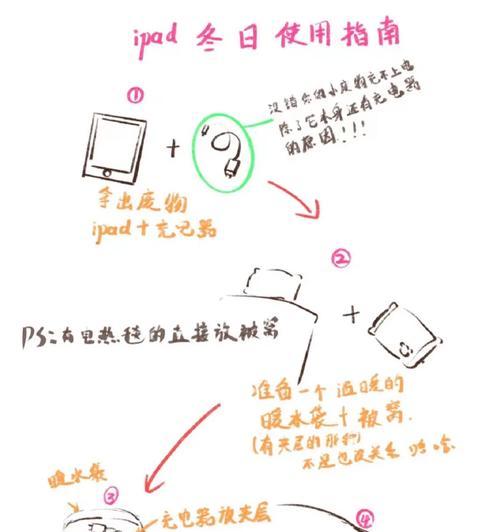 ipad 冬日使用指南
①
没错你的小废物充不上电
除了它本身还有充电器
的原因!!!
+
拿出废物
ipad+充电器
②
+
PS:有电热毯的直接放被窝
准备一个温暖的
暖水袋+被窝.
(有夹层的那种)
不是也没关系 哈哈
暖水袋
③
充电器放夹层
④